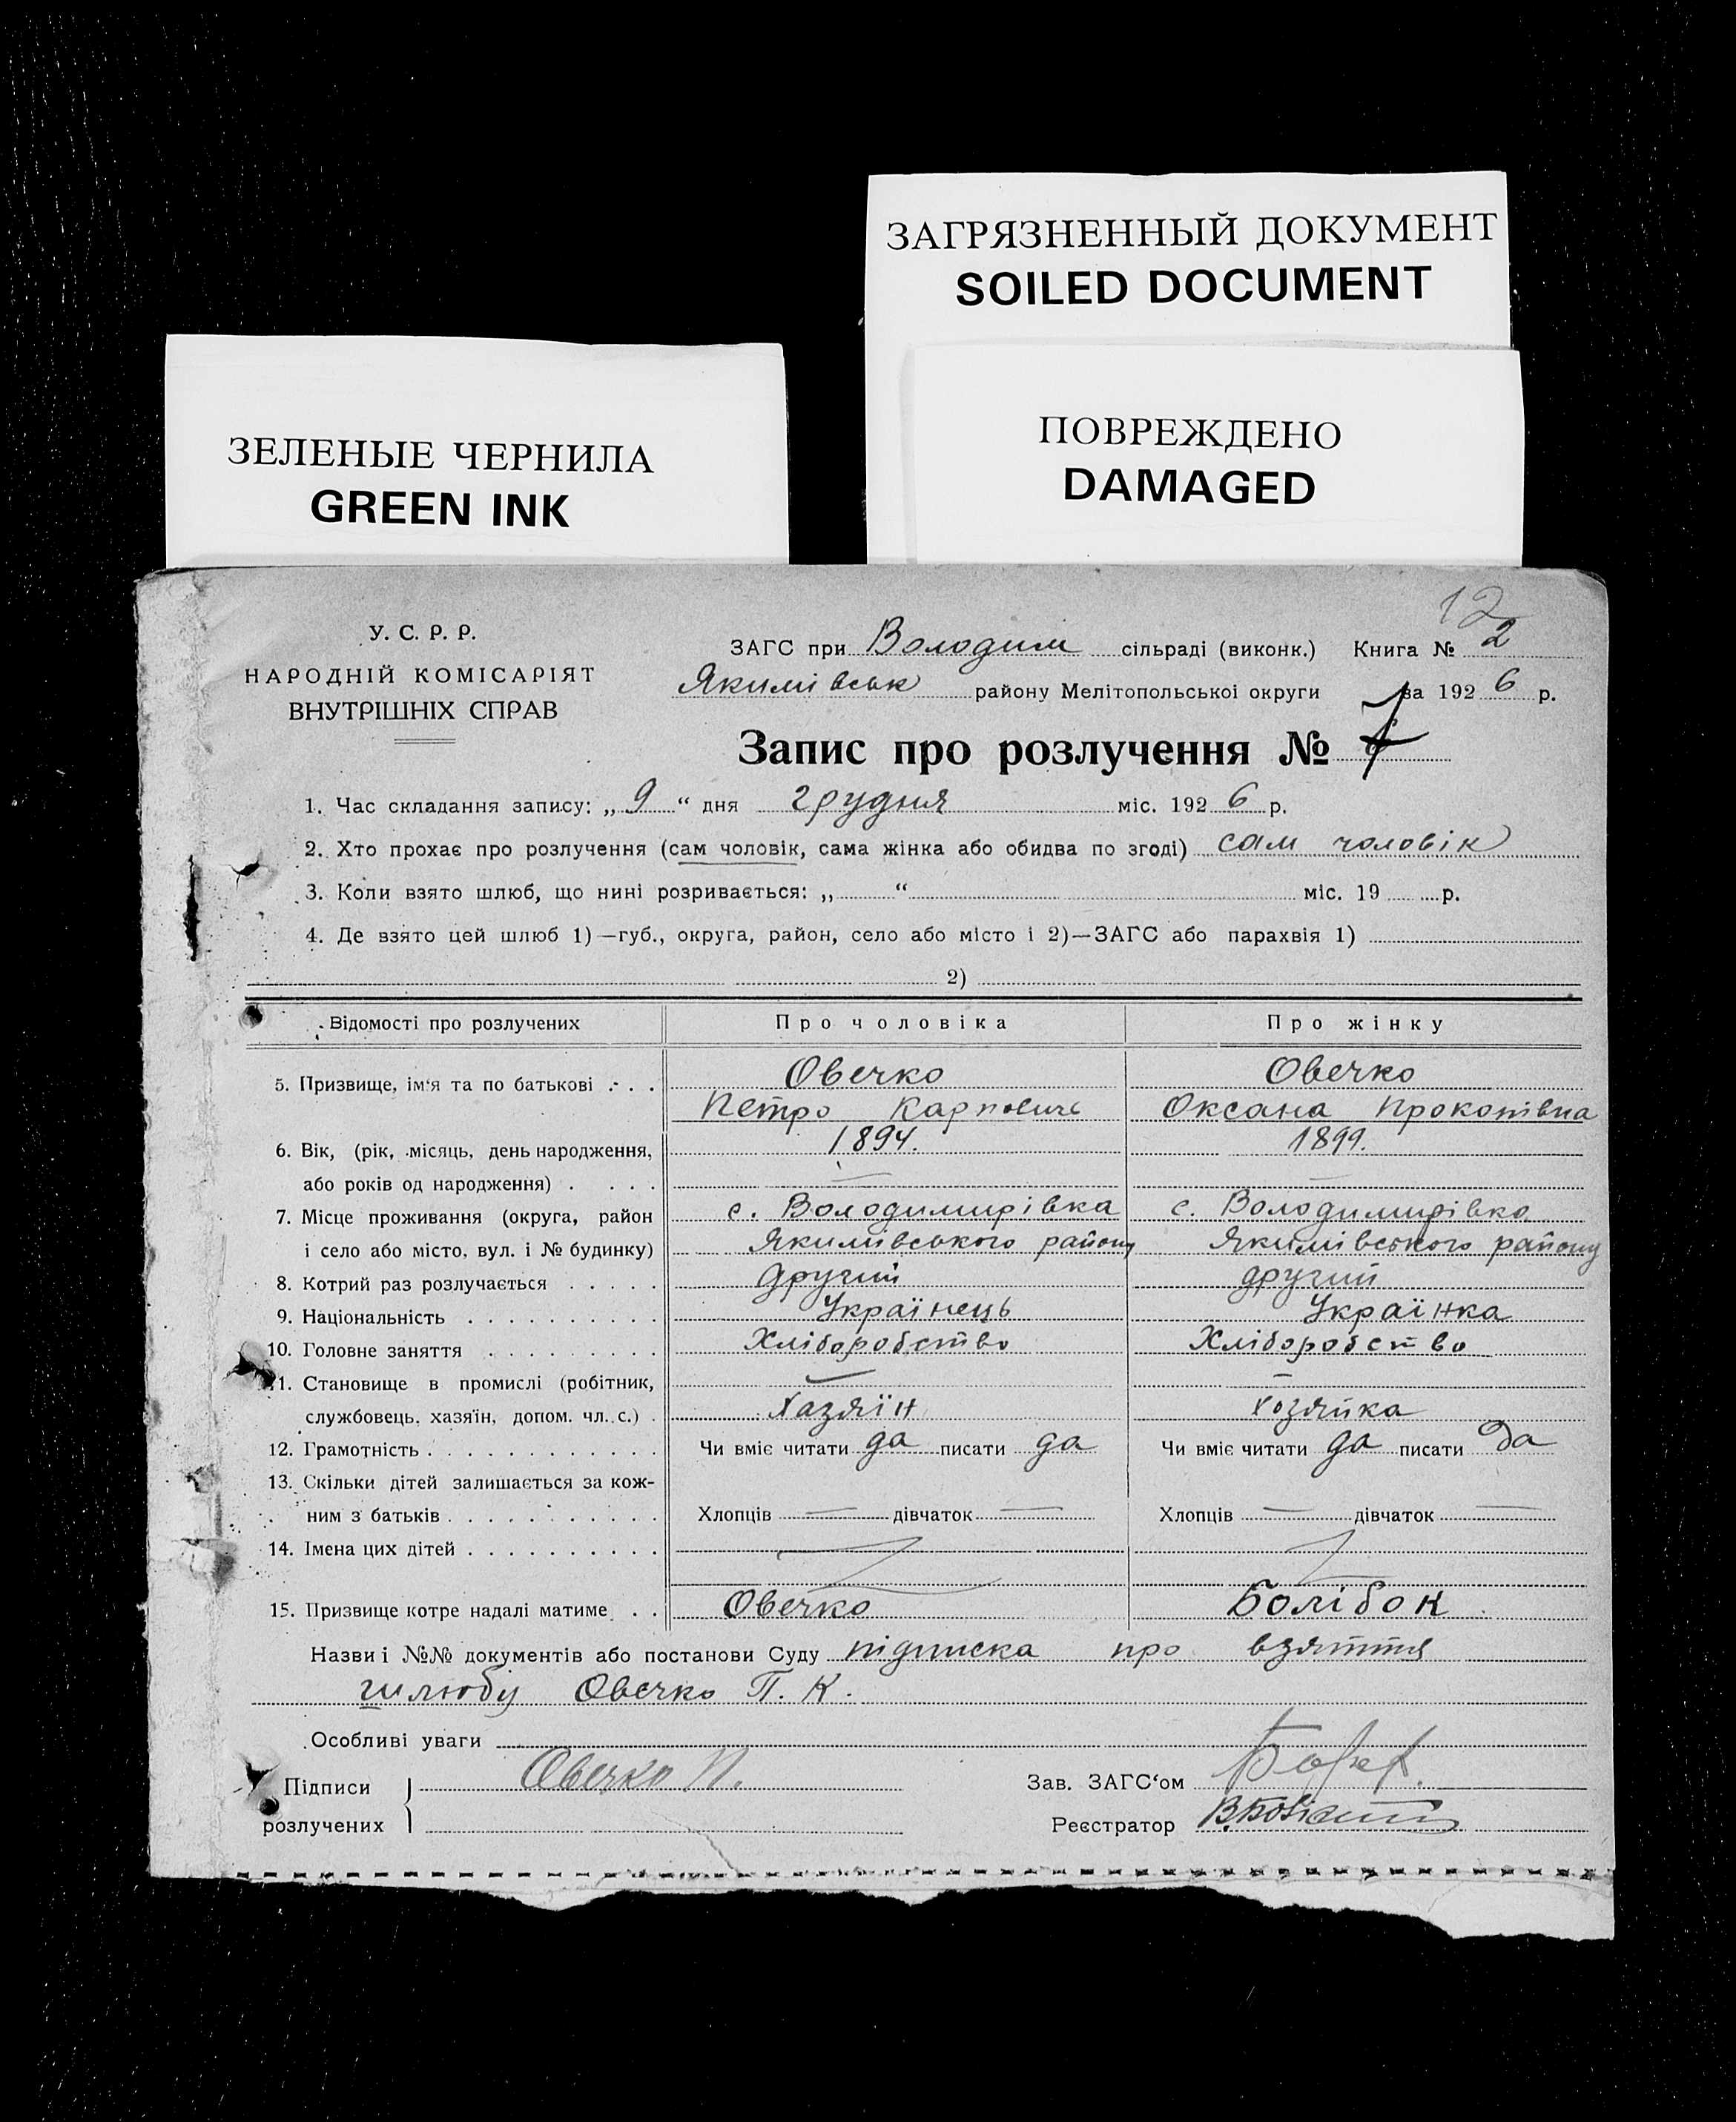 ЗАГРЯЗНЕННЫЙ ДОКУМЕНТ
SOILED DOCUMENT
ЗЕЛЕНЫЕ ЧЕРНИЛА
GREEN INK
ПОВРЕЖДЕНО
DAMAGED
12
У. С. Р. Р.
НАРОДНІЙ КОМІСАРІЯТ
ВНУТРІШНІХ СПРАВ
ЗАГС при Володим сільраді (виконк.) Книга № 2
Якимівськ району Мелітопольськоі округи за 192 6 р.
Запис про розлучення № 7
1. Час складання запису: „ 9 “ дня грудня міс. 192 6 р.
2. Хто прохає про розлучення (сам чоловік, сама жінка або обидва по згоді) сам чоловік
3. Коли взято шлюб, що нині розривається: „ “ міс. 19 р.
4. Де взято цей шлюб 1)—губ., округа, район, село або місто і 2)—ЗАГС або парахвія 1)
2)
Відомості про розлучених Про чоловіка Про жінку
5. Призвище, ім‘я та по батькові . . . Овечко Овечко
Петро Карпович Оксана Прокопівна
6. Вік, (рік, місяць, день народження, 1894. 1899.
або років од народження) . . . . — —
7. Місце проживання (округа, район с. Володимирівка с. Володимирівка
і село або місто, вул. і № будинку) Якимівського району Якимівського району
8. Котрий раз розлучається . . . . . другий другий
9. Національність . . . . . . . . . . Українець Українка
10. Головне заняття . . . . . . . . . Хліборобство Хліборобство
11. Становище в промислі (робітник, — —
службовець, хазяїн, допом. чл. с.) . Хазяїн Хозяйка
12. Грамотність . . . . . . . . . . . . Чи вміє читати да писати да Чи вміє читати да писати да
13. Скільки дітей залишається за кож-
ним з батьків . . . . . . . . . . . Хлопців — дівчаток — Хлопців — дівчаток —
14. Імена цих дітей . . . . . . . . . .
15. Призвище котре надалі матиме . . Овечко Болібок
Назви і №№ документів або постанови Суду підписка про взяття
шлюбу Овечко П. К.
Особливі уваги
Підписи Овечко П. Зав. ЗАГС‘ом
розлучених Реєстратор